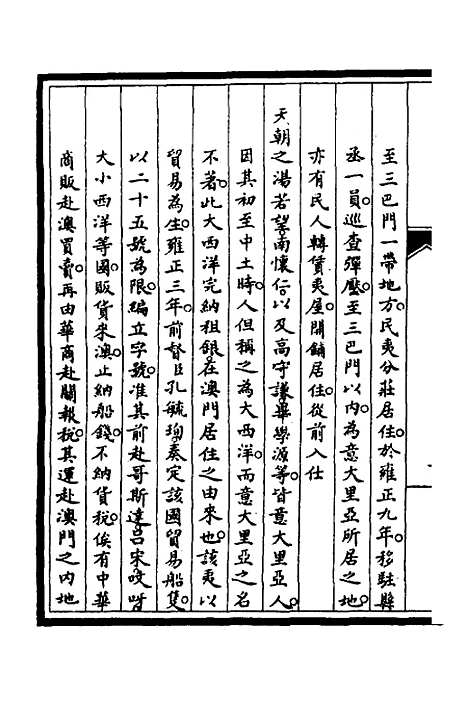 至三巴門一帶地方。民夷分莊居住。於雍正九年。移駐縣
丞一員。巡查彈壓。至三巴門以內。為意大里亞所居之地。
亦有民人轉賃夷屋開鋪居住。從前入仕
天朝之湯若望南懷仁以及高守謙畢學源等。皆意大里亞人。
因其初至中土。時人但稱之為大西洋。而意大里亞之名
不著。此大西洋完納租銀。在澳門居住之由來也。該夷以
貿易為生。雍正三年。前督臣孔毓珣奏定該國貿易船隻。
以二十五號為限。編立字號。准其前赴哥斯達呂宋咬𠺕
大小西洋等國。販貨來澳。止納船鈔。不納貨稅。俟有中華
商販赴澳買賣。再由華商赴關報稅。其運赴澳門之內地